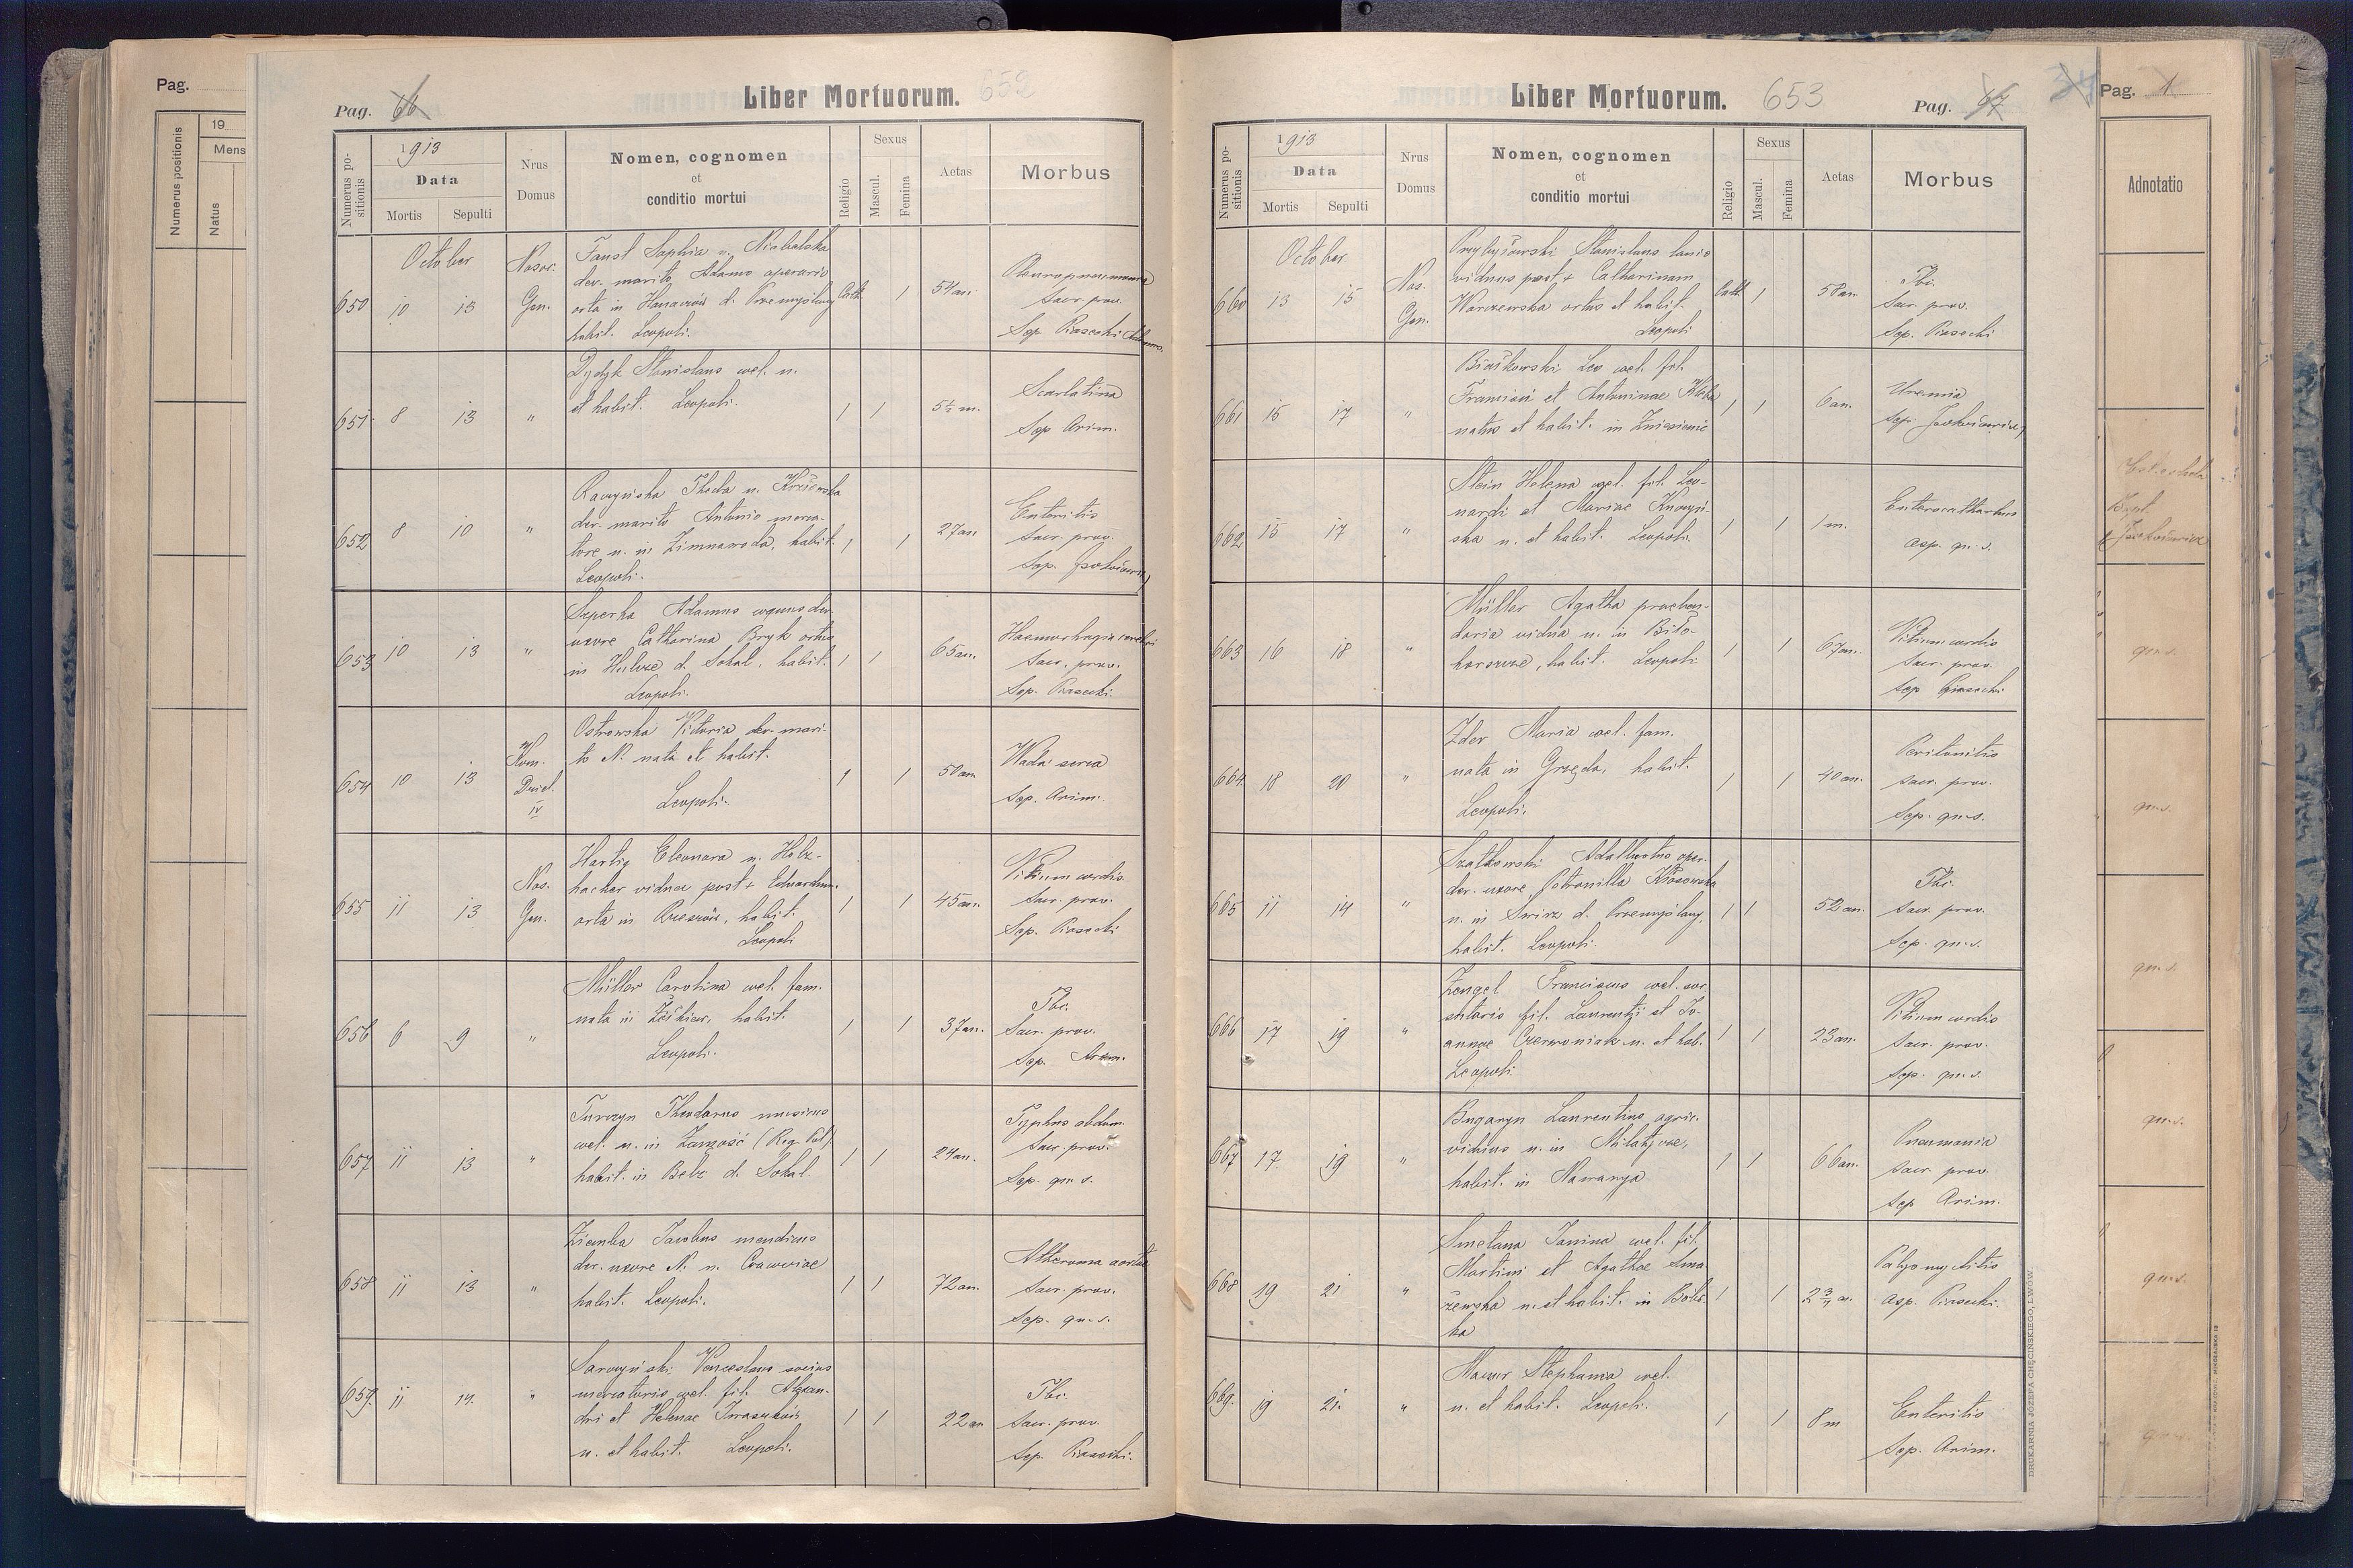 Pag.
Numerus positionis
19
Mens
Natus
Pag. 66
Liber Mortuorum. 652
Numerus po-
sitionis
1913
Data
Mortis
Sepulti
Nrus
Domus
Nomen, cognomen
et
conditio mortui
Religio
Sexus
Mascul.
Femina
Aetas
Morbus
650
October
10 13
Nosoc.
Gen.
Faust Sophia n. Niebalska
der. marito Adamo operario
orta in Hanaczów d. Przemyślany
habit. Leopoli.
Cath.
1
54 an.
Pleuropneumonia
Sacr. prov.
Sep. Piasecki
651 8 13 "
Dydyk Stanislaus coel. n.
et habit. Leopoli.
1 1
5½ m.
Scarlatina
Sep. Arim.
652 8 10 "
Raczyńska Thecla n.
der. marito Antonio merca-
tore n. in Zimnawoda, habit.
Leopoli.
1 1
27 an.
Enteritis
Sacr. prov.
Sep.
653 10 13 "
Szperka Adamus der.
uxore Catharina Bryk ortus
in Hulcze d. Sokal, habit.
Leopoli.
1 1
65 an.
Haemorhagia cerebri
Sacr. prov.
Sep. Piasecki.
654 10 13
Kom.
Dziel.
IV
Ostrowska Victoria der. mari-
to N. nata et habit.
Leopoli.
1 1
50 an.
Wada serca
Sep. Arim.
655 11 13
Nos.
Gen.
Hartig Eleonora n. Holz-
hacker vidua post + Eduardum.
orta in Rzeszów, habit.
Leopoli
1 1
45 an.
Vitium cordis
Sacr. prov.
Sep. Piasecki
656 6 9 "
Müller Carolina coel. fam.
nata in Żółkiew, habit.
Leopoli.
1 1
37 an.
Tbc.
Sacr. prov.
Sep. Arim.
657 11 13 "
Turczyn Theodorus musicus
coel. n. in Zamość (Reg. Pol)
habit. in Belz d. Sokal.
1 1
24 an.
Typhus abdom.
Sacr. prov.
Sep. qu. s.
658 11 13 "
Ziemba Jacobus mendicus
der. uxore N. n. Cracoviae
habit. Leopoli.
1 1
72 an.
Atheroma aortae
Sacr. prov.
Sep. qu. s.
659. 11 14. "
Sarczyński Venceslaus socius
mercatoris coel. fil. Alexan-
dri et Helenae
n. et habit. Leopoli.
1 1
22 an
Tbc.
Sacr. prov.
Sep. Piasecki.
Liber Mortuorum. 653
Pag. 67
Numerus po-
sitionis
1913
Data
Mortis
Sepulti
Nrus
Domus
Nomen, cognomen
et
conditio mortui
Religio
Sexus
Mascul.
Femina
Aetas
Morbus
660
October
13 15
Nos.
Gen.
Przybyszowski Stanislaus lanio
viduus post + Catharinam
Warczewska ortus et habit.
Leopoli
Cath. 1
58 an.
Tbc.
Sacr. prov.
Sep. Piasecki
661 15 17 "
Białkowski Leo coel. fil.
Francisci et Antoninae
natus et habit. in Zniesienie
1 1
6 an.
Uremia
Sep.
662 15 17 "
Stein Helena coel. fil. Leo-
nardi et Mariae Knozyń-
ska n. et habit. Leopoli.
1 1
1 m.
Enterocatharhus
asp. qu. s.
663 16 18 "
Müller Agatha praeben-
daria vidua n. in Biło-
horszcze, habit. Leopoli
1 1
67 an.
Vitium cordis
Sacr. prov.
Sep Piasecki.
664 18 20 "
Zder Maria coel. fam.
nata in Grzęda, habit.
Leopoli.
1 1
40 an.
Peritonitis
Sacr. prov.
Sep. qu. s.
665 11 14 "
Szatkowski Adalbertus oper.
der. uxore Petronilla Kłosowska
n. in Świrz d. Przemyślany,
habit. Leopoli.
1 1
52 an.
Tbc.
Sacr. prov.
Sep. qu. s.
666 17 19 "
Zengel Franciscus coel. scr.
fil. Laurentii et Jo-
annae Czerwoniak n. et hab.
Leopoli
1 1
23 an.
Vitium cordis
Sacr. prov.
Sep. qu. s.
667 17 19 "
Bugaryn Laurentius, agric.
viduus n. in Milatycze,
habit. in Nawarya
1 1
66 an.
Pneumonia
Sacr. prov.
Sep Arim.
668 19 21 "
Smetana Janina coel. fil.
Martini et Agathae Sma-
żewska n. et habit. in Bóbr-
ka
1 1
2 3/4 a.
Polyomyelitis
asp. Piasecki.
669. 19 21. "
Mazur Stephania coel.
n. et habit. Leopoli.
1 1
8 m
Enteritis
Sep. Arim.
DRUKARNIA JÓZEFA CHĘCIŃSKIEGO, LWÓW.
Pag. 1
Adnotatio
qu. s.
qu. s.
qu. s.
qu. s.
qu. s.